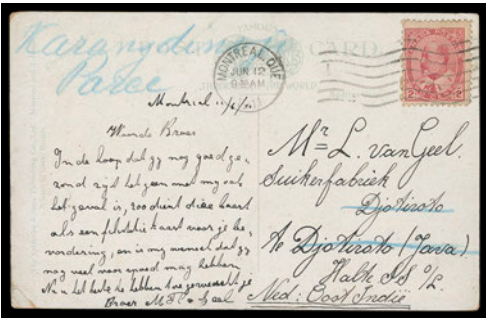 Karangdinojo
Paree
CARD
MONTREAL, QUE
JUN 12
Montreal 11/6/11
Waarde Broer
In de hoop dat gy nog goed ge-
zond zyt hetgeen met my ook
het geval is, zoo dient deze kaart
als een felicitatie kaart voor je be-
vordering, en is my wensch dat gy
nog veel voorspoed mag hebben
Nu u het beste te hebben toegewenscht
Broer
Mr L. van Geel.
Suikerfabriek
Djotiroto
te Djotiroto (Java)
Halte SS o/L.
Ned: Oost Indië